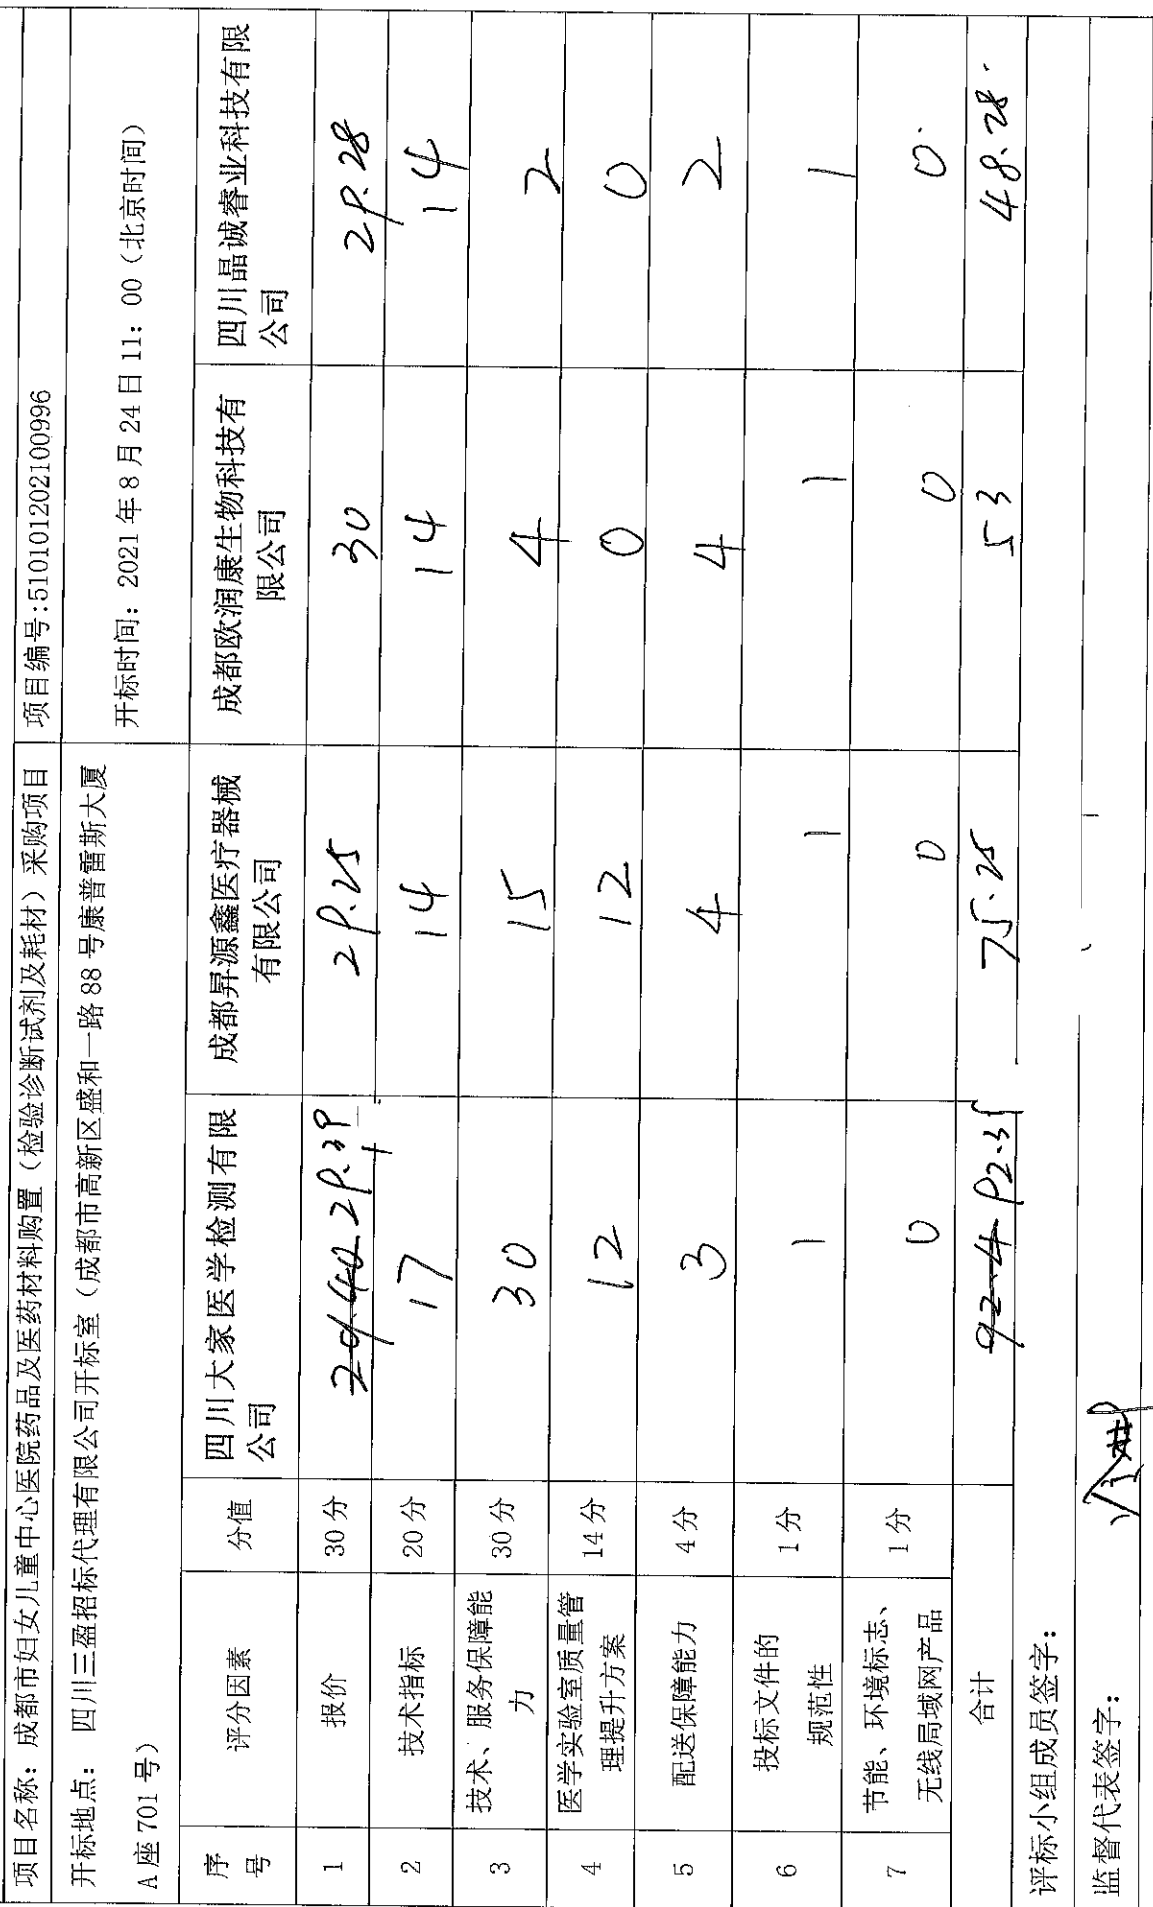 项目名称：成都市妇女儿童中心医院药品及医药材料购置（检验诊断试剂及耗材）采购项目 项目编号:5101012021​00996
开标地点： 四川三盈招标代理有限公司开标室（成都市高新区盛和一路 88 号康普雷斯大厦
A 座 701 号） 开标时间：2021 年 8 月 24 日 11：00（北京时间）
序号 评分因素 分值 四川大家医学检测有限公司 成都昇源鑫医疗器械有限公司 成都欧润康生物科技有限公司 四川晶诚睿业科技有限公司
1 报价 30 分 29.39 29.25 30 29.28
2 技术指标 20 分 17 14 14 14
3 技术、服务保障能力 30 分 30 15 4 2
4 医学实验室质量管理提升方案 14 分 12 12 0 0
5 配送保障能力 4 分 3 4 4 2
6 投标文件的规范性 1 分 1 1 1 1
7 节能、环境标志、无线局域网产品 1 分 0 0 0 0
合计 92.4 92.39 75.25 53 48.28
评标小组成员签字：
监督代表签字：